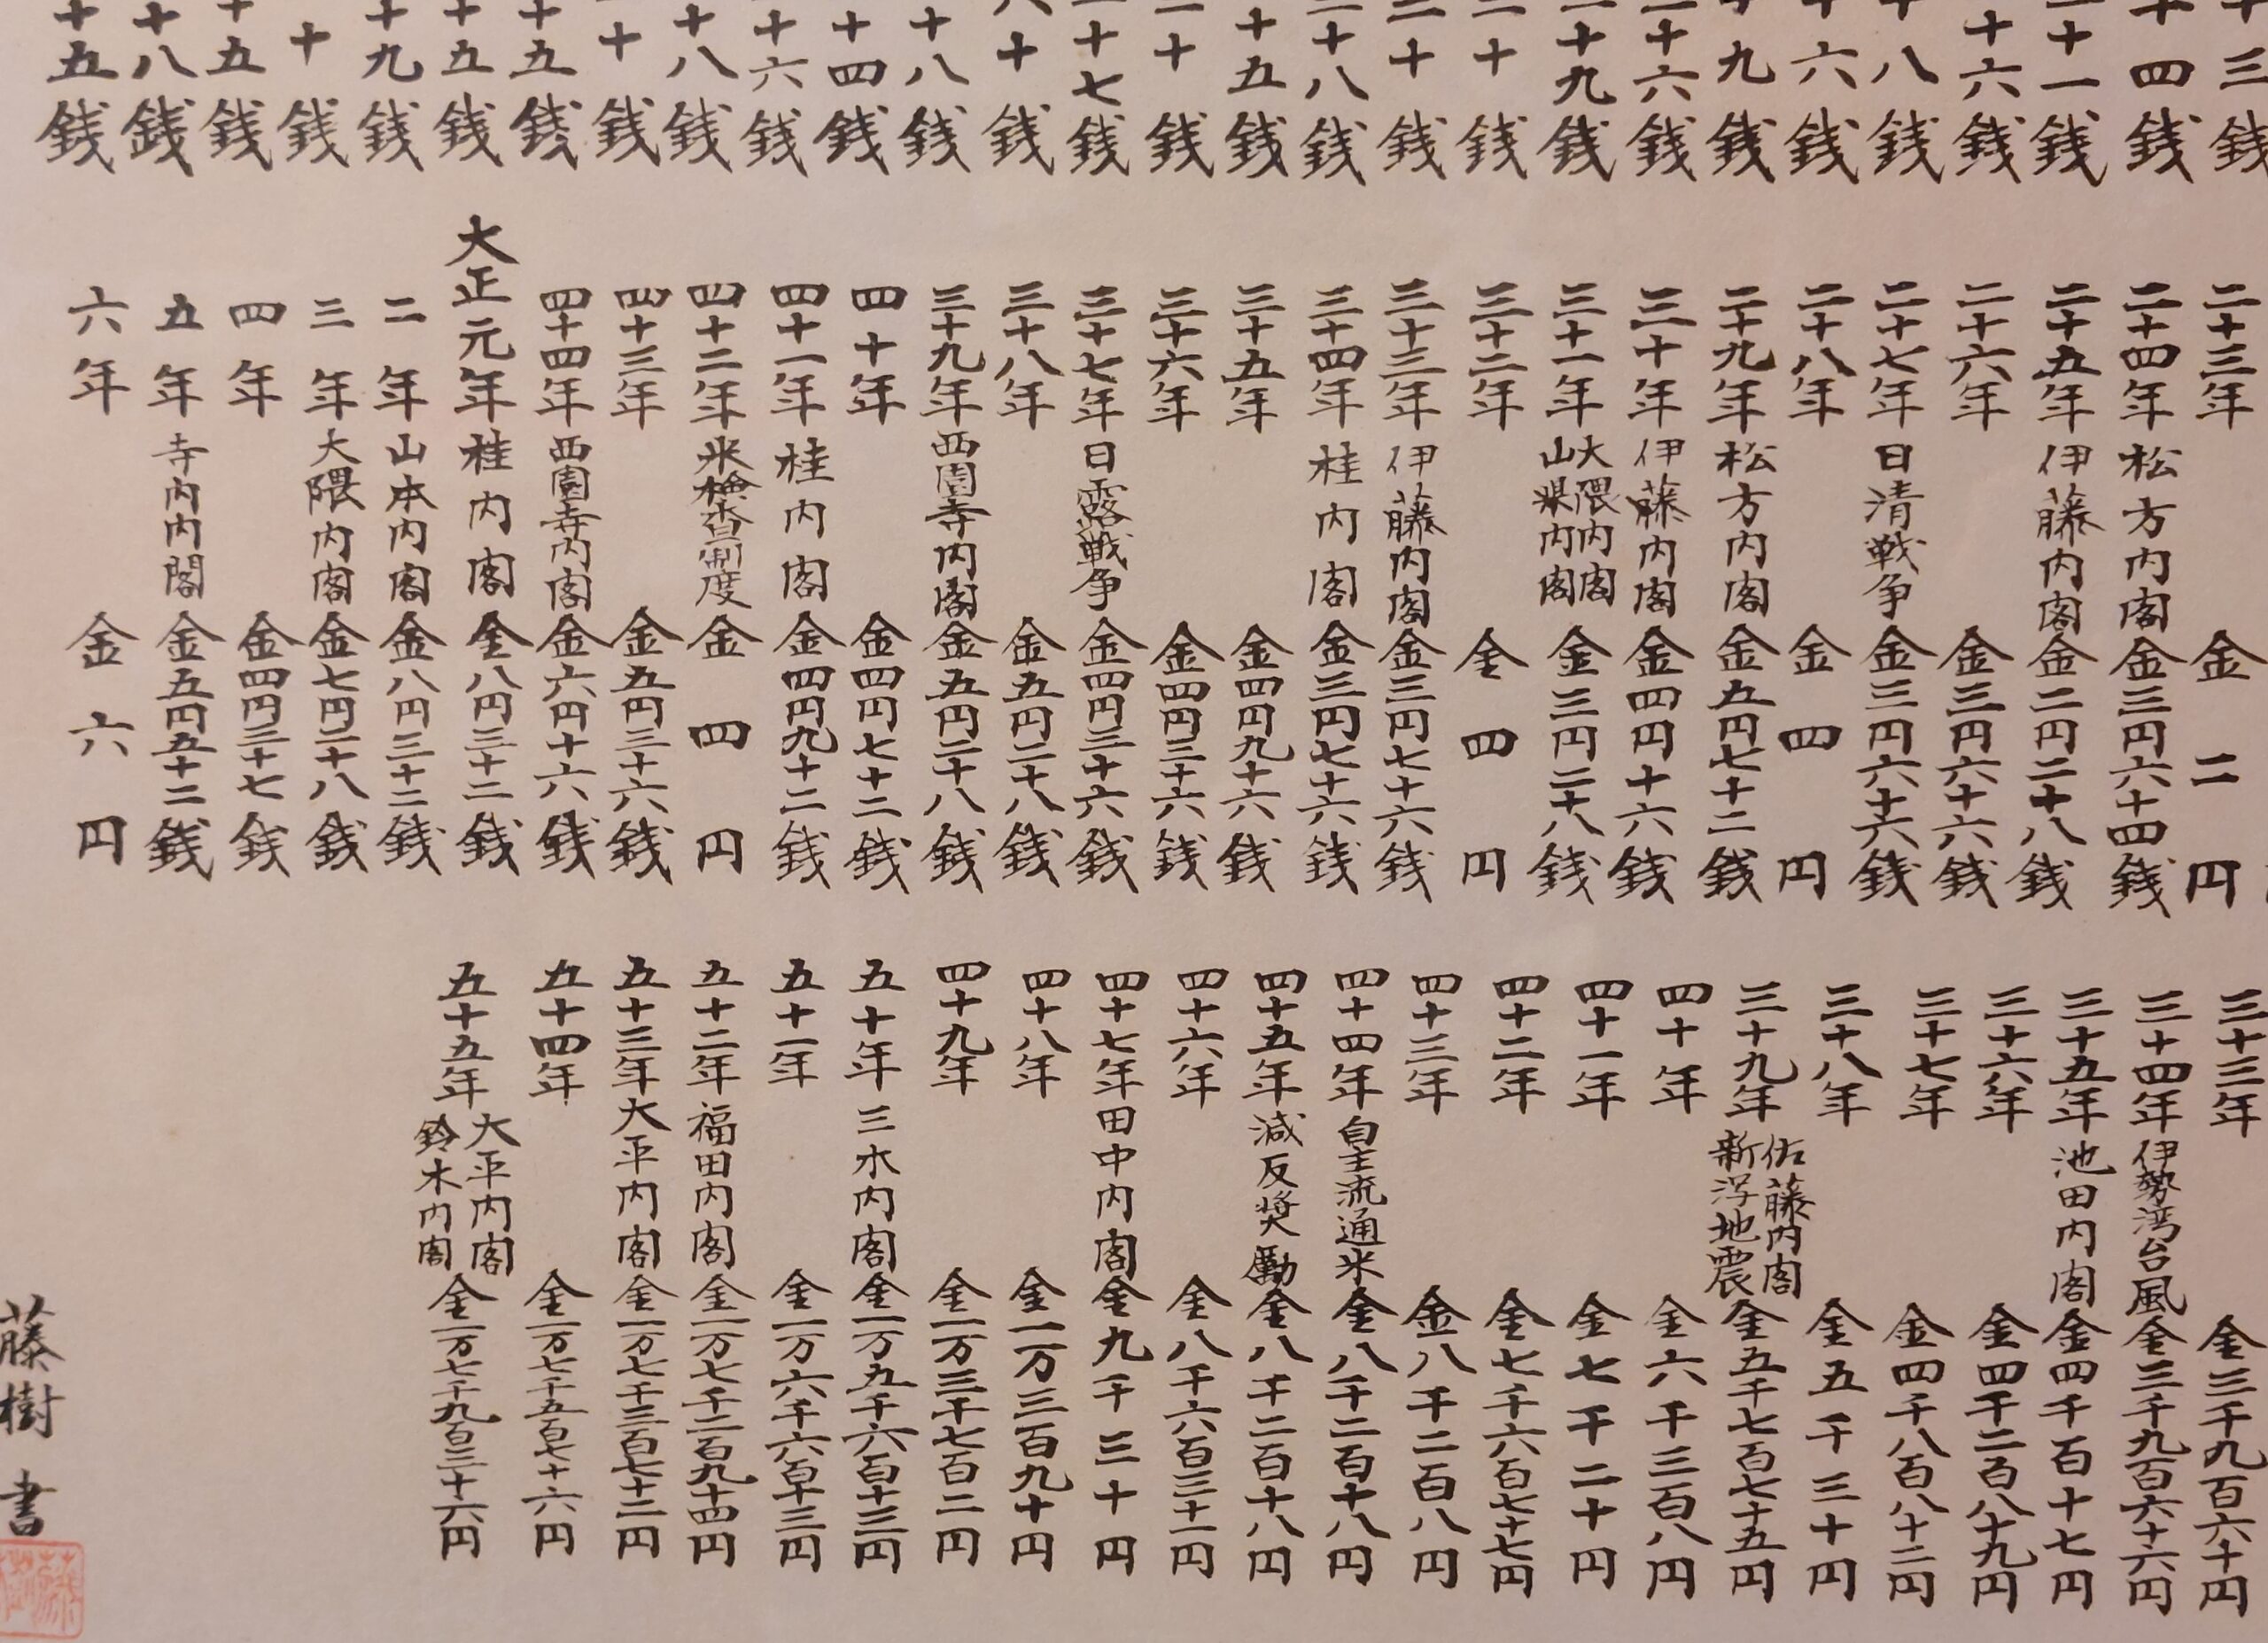 十三銭
十四銭
二十一銭
十六銭
十八銭
十六銭
九銭
二十六銭
二十九銭
二十銭
二十銭
二十八銭
十五銭
二十銭
二十七銭
十銭
十八銭
十四銭
十六銭
十八銭
十銭
十五銭
十五銭
十九銭
十銭
十五銭
十八銭
十五銭
二十三年 金二円
二十四年 松方内閣 金三円六十四銭
二十五年 伊藤内閣 金二円二十八銭
二十六年 金三円六十六銭
二十七年 日清戦争 金三円六十六銭
二十八年 金四円
二十九年 松方内閣 金五円七十二銭
三十年 伊藤内閣 金四円十六銭
三十一年 大隈内閣 山県内閣 金三円二十八銭
三十二年 金四円
三十三年 伊藤内閣 金三円七十六銭
三十四年 桂内閣 金三円七十六銭
三十五年 金四円九十六銭
三十六年 金四円三十六銭
三十七年 日露戦争 金四円三十六銭
三十八年 金五円二十八銭
三十九年 西園寺内閣 金五円二十八銭
四十年 金四円七十二銭
四十一年 桂内閣 金四円九十二銭
四十二年 米検査制度 金四円
四十三年 金五円三十六銭
四十四年 西園寺内閣 金六円十六銭
大正元年 桂内閣 金八円三十二銭
二年 山本内閣 金八円三十二銭
三年 大隈内閣 金七円二十八銭
四年 金四円三十七銭
五年 寺内内閣 金五円五十二銭
六年 金六円
三十三年 金三千九百六十円
三十四年 伊勢湾台風 金三千九百六十六円
三十五年 池田内閣 金四千百十七円
三十六年 金四千二百八十九円
三十七年 金四千八百八十二円
三十八年 金五千三十円
三十九年 佐藤内閣 新潟地震 金五千七百七十五円
四十年 金六千三百八円
四十一年 金七千二十円
四十二年 金七千六百七十七円
四十三年 金八千二百八円
四十四年 自主流通米 金八千二百十八円
四十五年 減反奨励 金八千二百十八円
四十六年 金八千六百三十一円
四十七年 田中内閣 金九千三十円
四十八年 金一万三百九十円
四十九年 金一万三千七百二円
五十年 三木内閣 金一万五千六百十三円
五十一年 金一万六千六百十三円
五十二年 福田内閣 金一万七千二百九十四円
五十三年 大平内閣 金一万七千三百七十二円
五十四年 金一万七千五百七十六円
五十五年 大平内閣 鈴木内閣 金一万七千九百三十六円
藤樹書